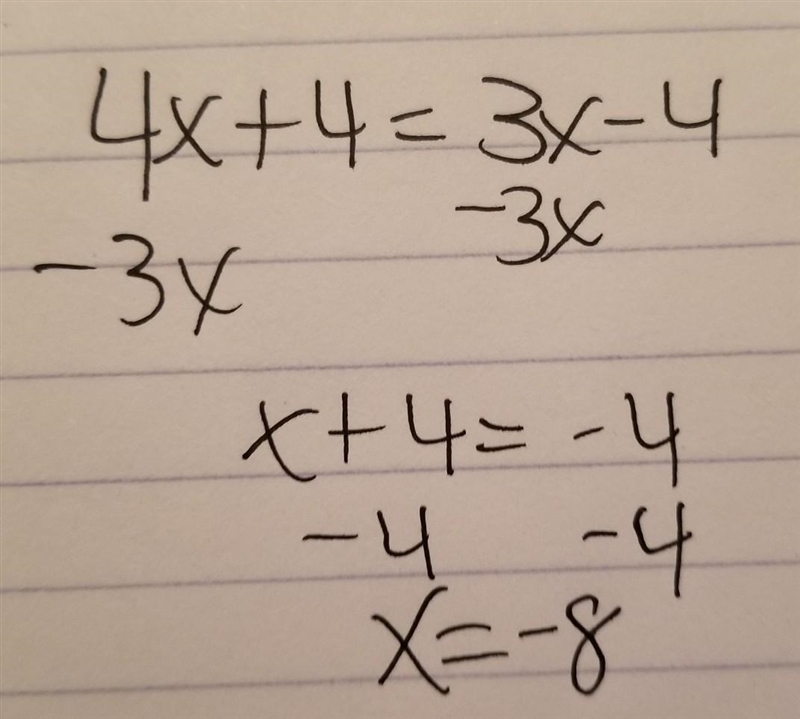 4x+4=3x-4
-3x -3x
x+4=-4
-4 -4
x=-8